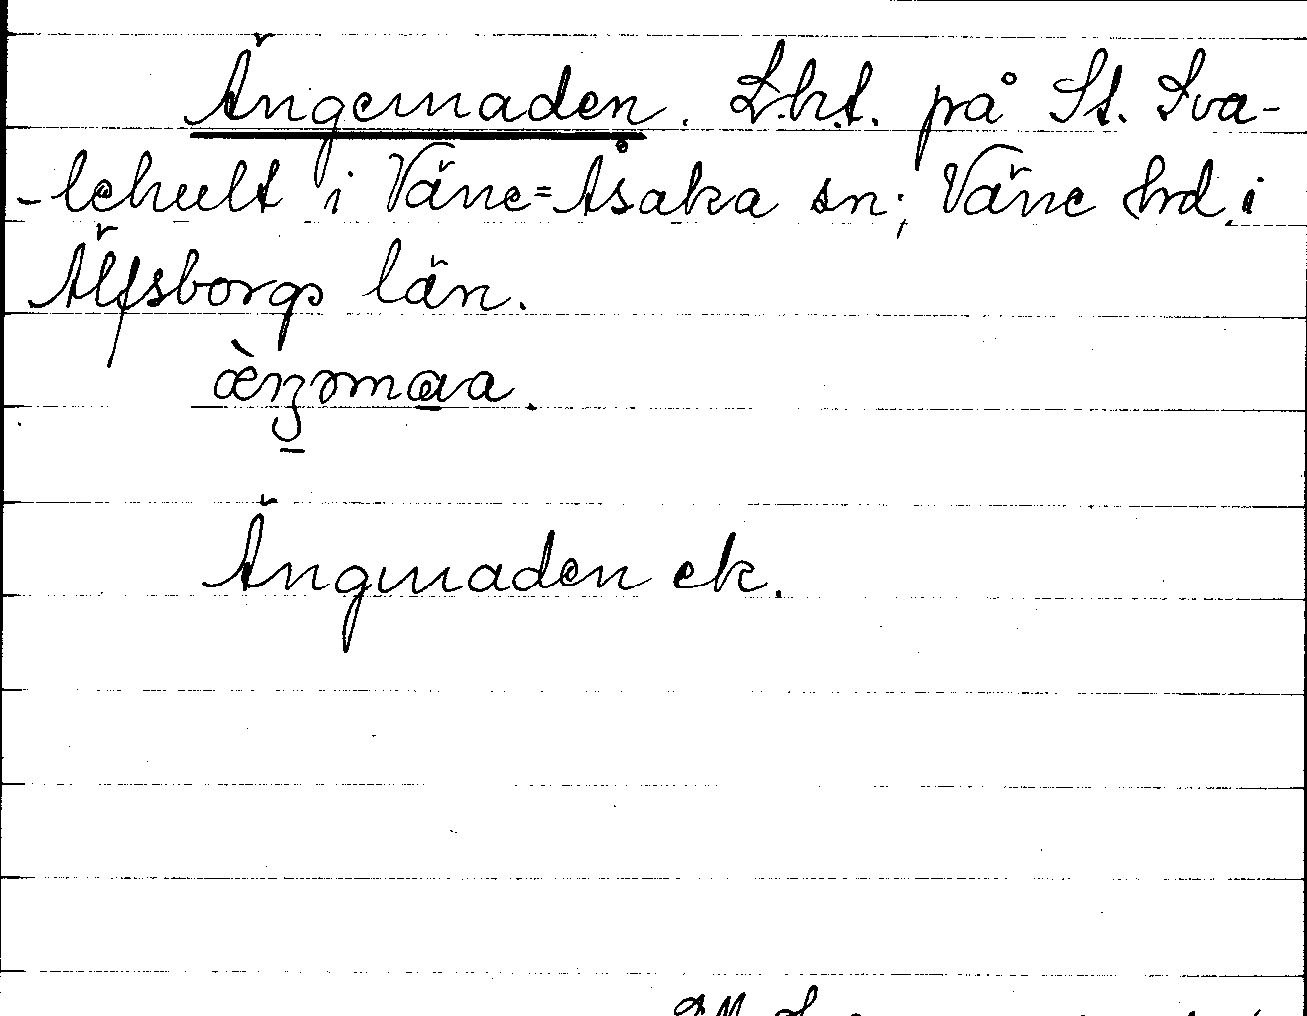 Ängemaden. L.h.t. på St. Sva-
-lehult i Väne=Åsaka sn; Väne hrd i
Älfsborgs län.
æ̀ŋəmaa.
Ängmaden ek.